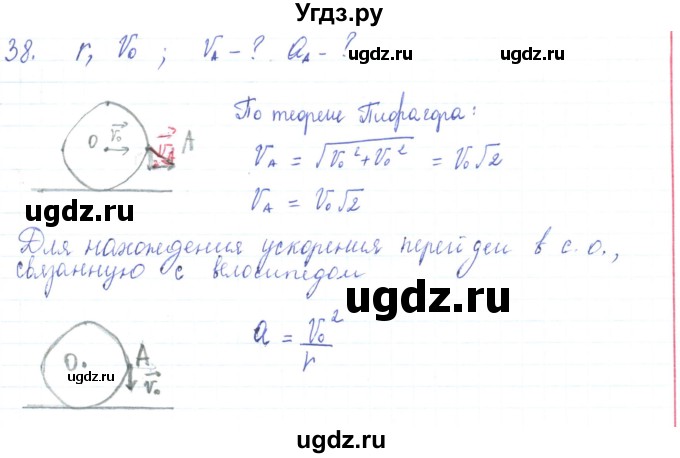 Угдз.ру
38. r, V₀ ; V_A - ? a_A - ?
ugdz.ru
ugdz.ru
По теореме Пифагора:
O V₀ V_A A
V_A = √(V₀² + V₀²) = V₀√2
ugdz.ru
V_A = V₀√2
ugdz.ru
Для нахождения ускорения перейдем в с.о.,
связанную с велосипедом
ugdz.ru
a = V₀²/r
O A V₀
ugdz.ru
ugdz.ru
ugdz.ru